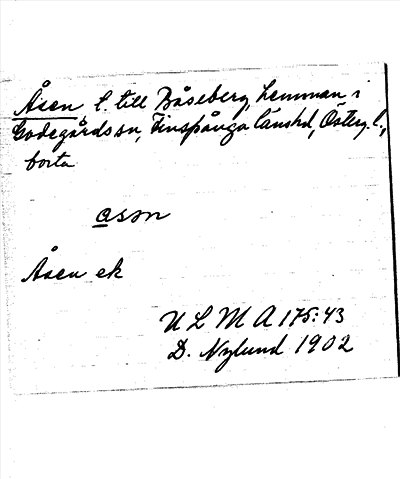 Åsen t. till Båseberg, hemman i
Godegårds sn, Finspånga länshd, Österg. l.,
borta
asən
Åsen ek
U L M A 175:43
D. Nylund 1902